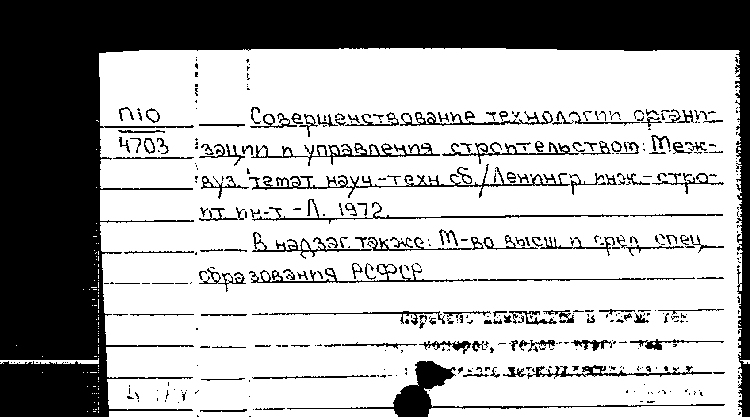 П10
4703
Совершенствование технологии, органи-
зации и управления строительством: Меж-
вуз. темат. науч.-техн. сб./Ленингр. инж.-стро-
ит. ин-т. -Л., 1972.
В надзаг. также: М-во высш. и сред. спец.
образования РСФСР
Перечень имеющихся в
номеров, годов этого